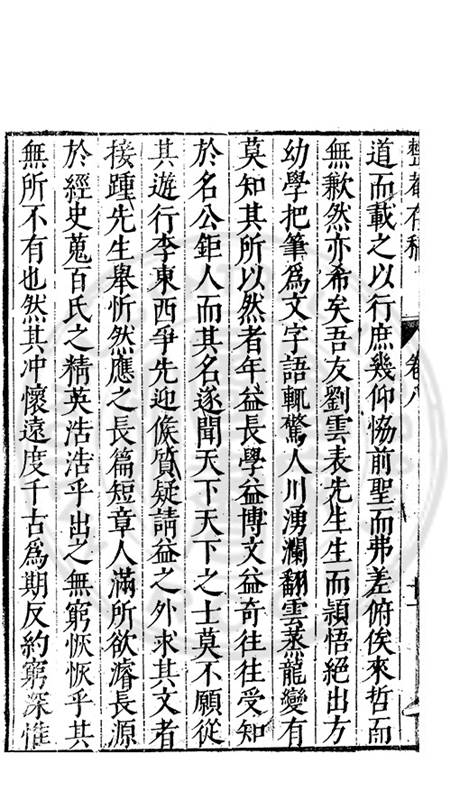 整菴存稿 卷八
道而載之以行庶幾仰恊前聖而弗差俯俟來哲而
無歉然亦希矣吾友劉雲表先生生而頴悟絕出方
幼學把筆爲文字語輒驚人川湧瀾翻雲蒸龍變有
莫知其所以然者年益長學益博文益奇往往受知
於名公鉅人而其名遂聞天下天下之士莫不願從
其遊行李東西爭先迎候質疑請益之外求其文者
接踵先生舉忻然應之長篇短章人滿所欲濬長源
於經史蒐百氏之精英浩浩乎出之無窮恢恢乎其
無所不有也然其冲懷遠度千古爲期反約窮深惟